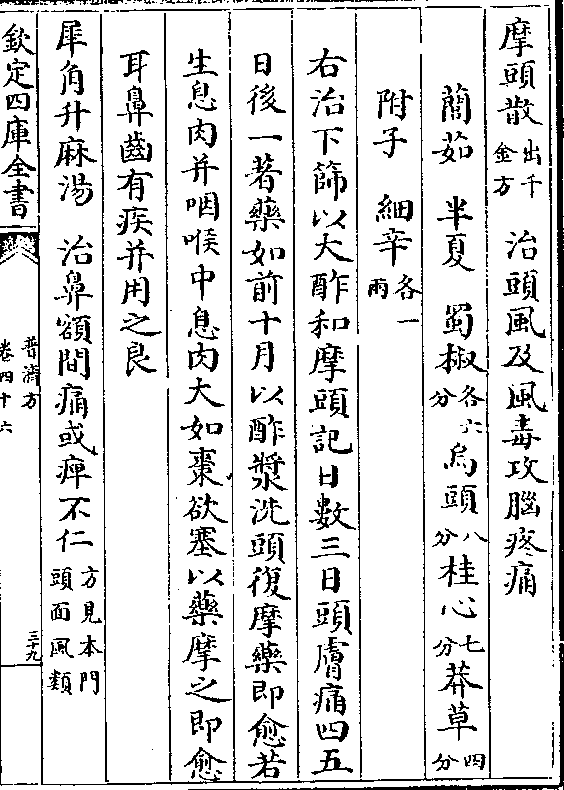 摩頭散出千金方 治頭風及風毒攻腦疼痛
藺茹 半夏 蜀椒各六分 烏頭八分 桂心七分 莽草四分
附子 細辛各一兩
右治下篩以大酢和摩頭記日數三日頭膚痛四五
日後一著藥如前十月以酢漿洗頭復摩藥即愈若
生息肉并咽喉中息肉大如棗欲塞以藥摩之即愈
耳鼻齒有疾并用之良
犀角升麻湯 治鼻額間痛或痺不仁方見本門頭面風類
欽定四庫全書
普濟方
卷四十六
三十九